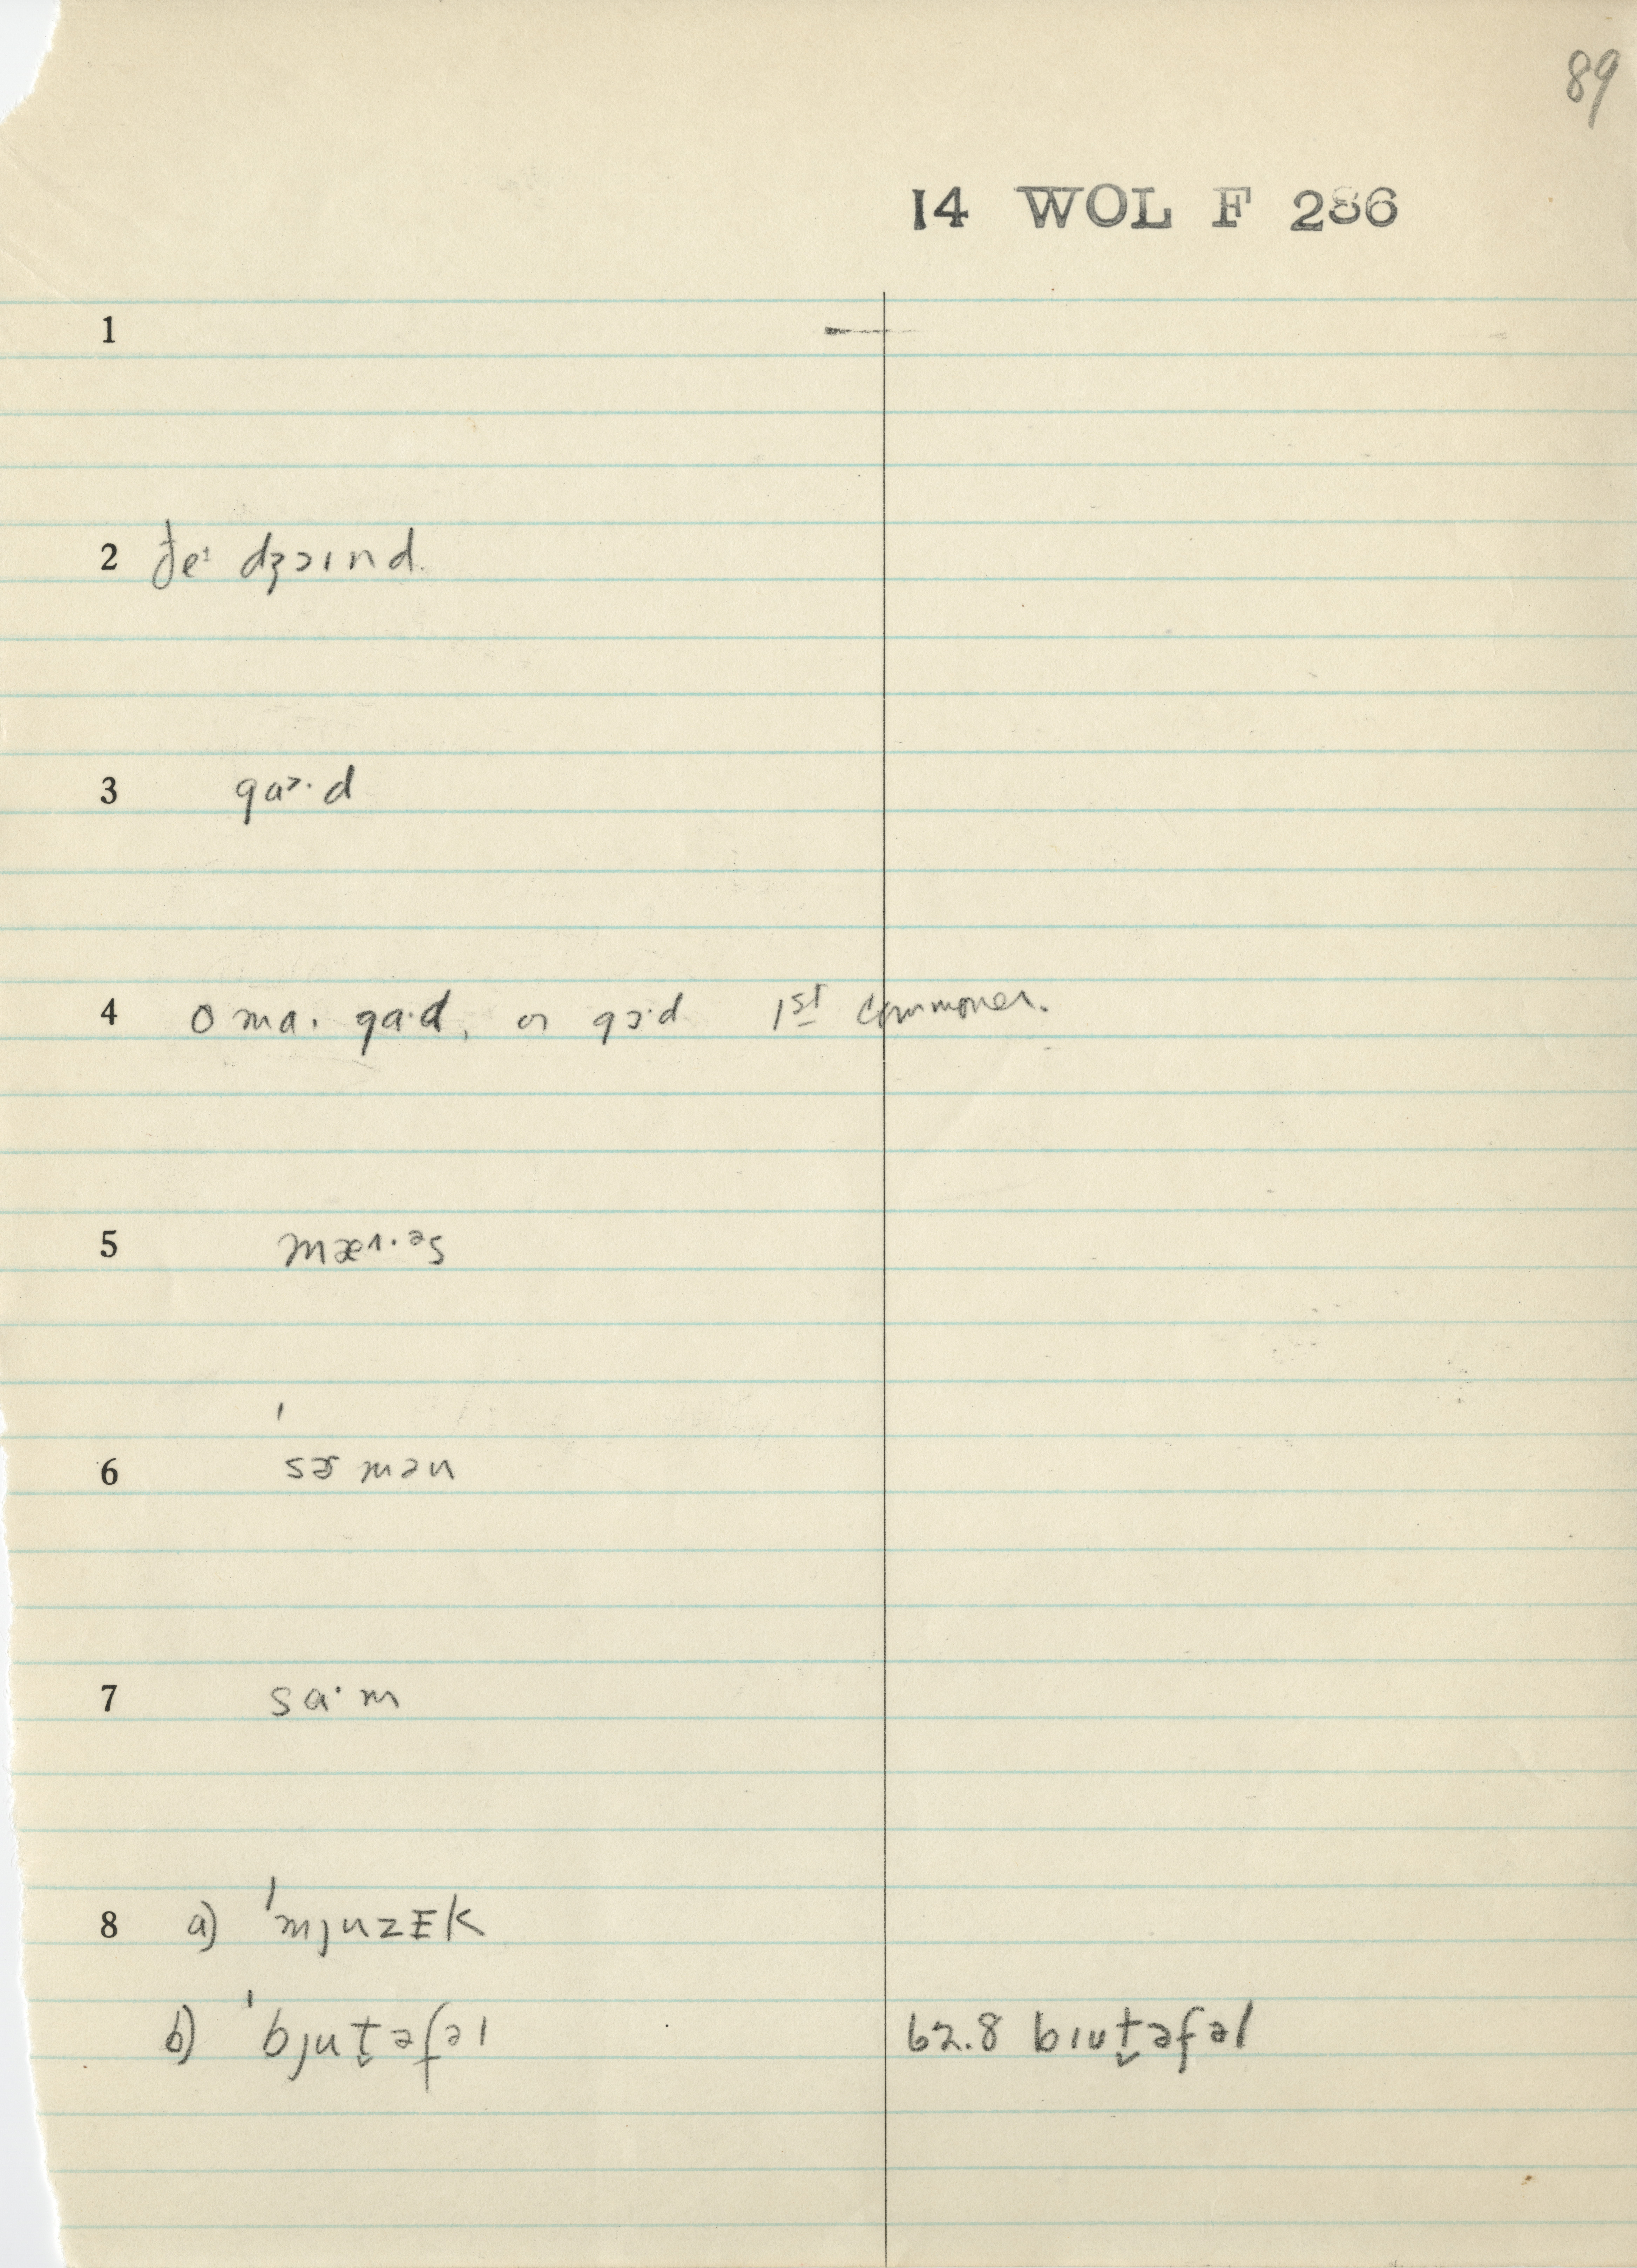 89
14 WOL F 286
1
2 ðeᶦ dʒɔɪnd.
3 gaᵓ·d
4 o ma· ga·d, or gɔ·d 1st commoner.
5 mæɪ·ᵊs
6 ˈsɚmən
7 sa·m
8 a) ˈmjuzɪk
b) ˈbjut̬əfəl 62.8 bɪut̬əfəl